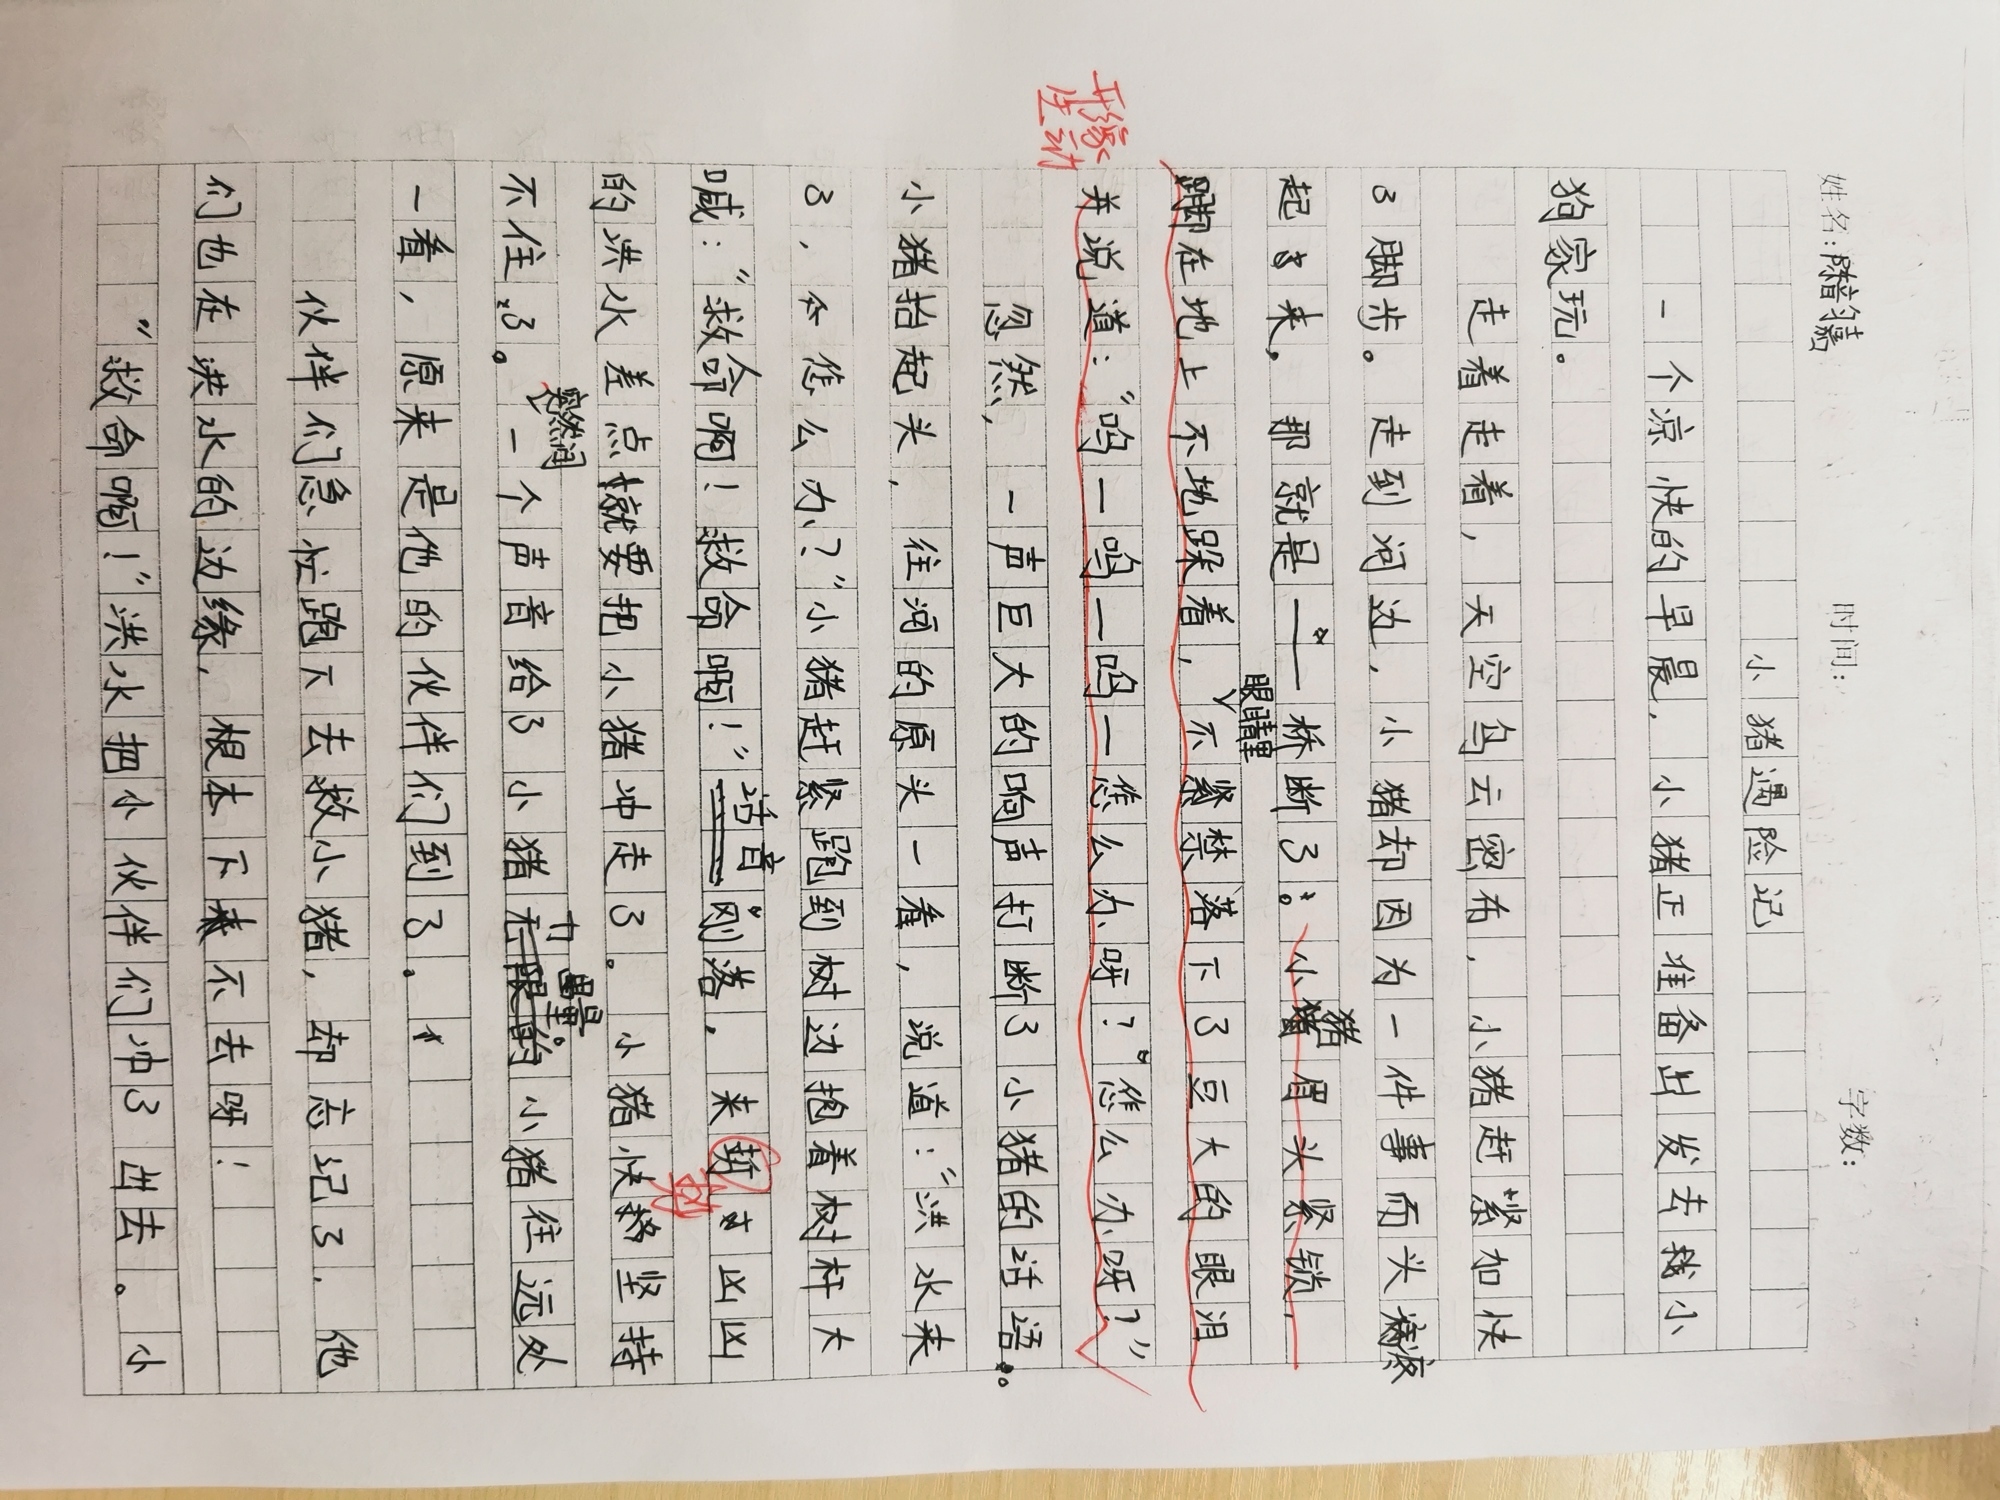 姓名： 时间： 字数：
小猪遇险记
一个凉快的早晨，小猪正准备出发去找小
狗家玩。
走着走着，天空乌云密布，小猪赶紧加快
了脚步。走到河边，小猪却因为一件事而头痛
起来，那就是——桥断了。小猪眉头紧锁，
脚在地上不地跺着，眼睛里不禁落下了豆大的眼泪
并说道：“呜—呜—呜—怎么办呀？怎么办呀？”
形象
生动
忽然，一声巨大的响声打断了小猪的话语。
小猪抬起头，往河的原头一看，说道：“洪水来
了，今怎么办？”小猪赶紧跑到树边抱着树杆大
喊：“救命啊！救命啊！”话音刚落，来
凶凶
的洪水差点就要把小猪冲走了。小猪快坚持
不住了。突然间一个声音给了小猪力量。小猪往远处
一看，原来是他的伙伴们到了。
伙伴们急忙跑下去救小猪，却忘记了，他
们也在洪水的边缘，根本下不去呀！
“救命啊！”洪水把小伙伴们冲了进去。小